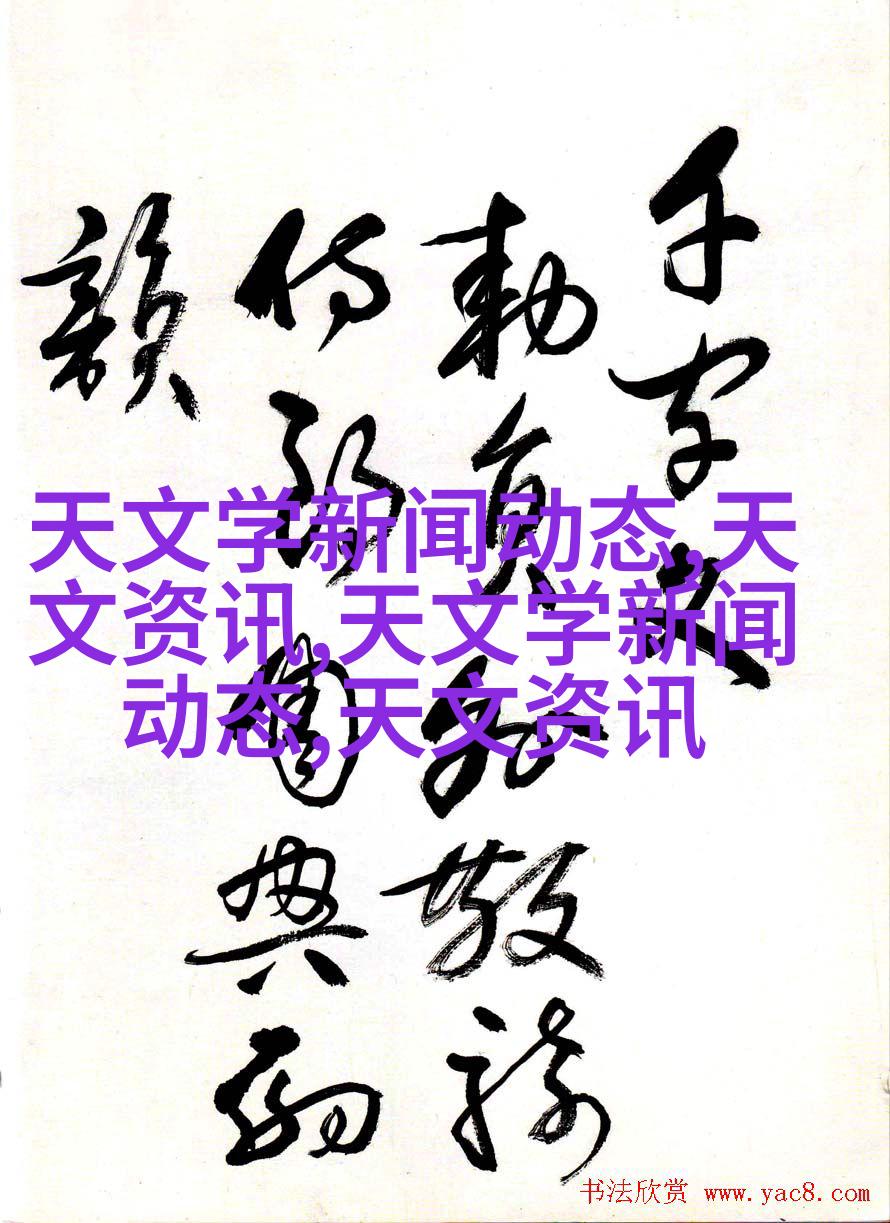 千字文
敕員外散騎
侍郎周興嗣
韻
天文学新闻动态,天
文资讯,天文学新闻
动态,天文资讯
书法欣赏 www.yac8.com